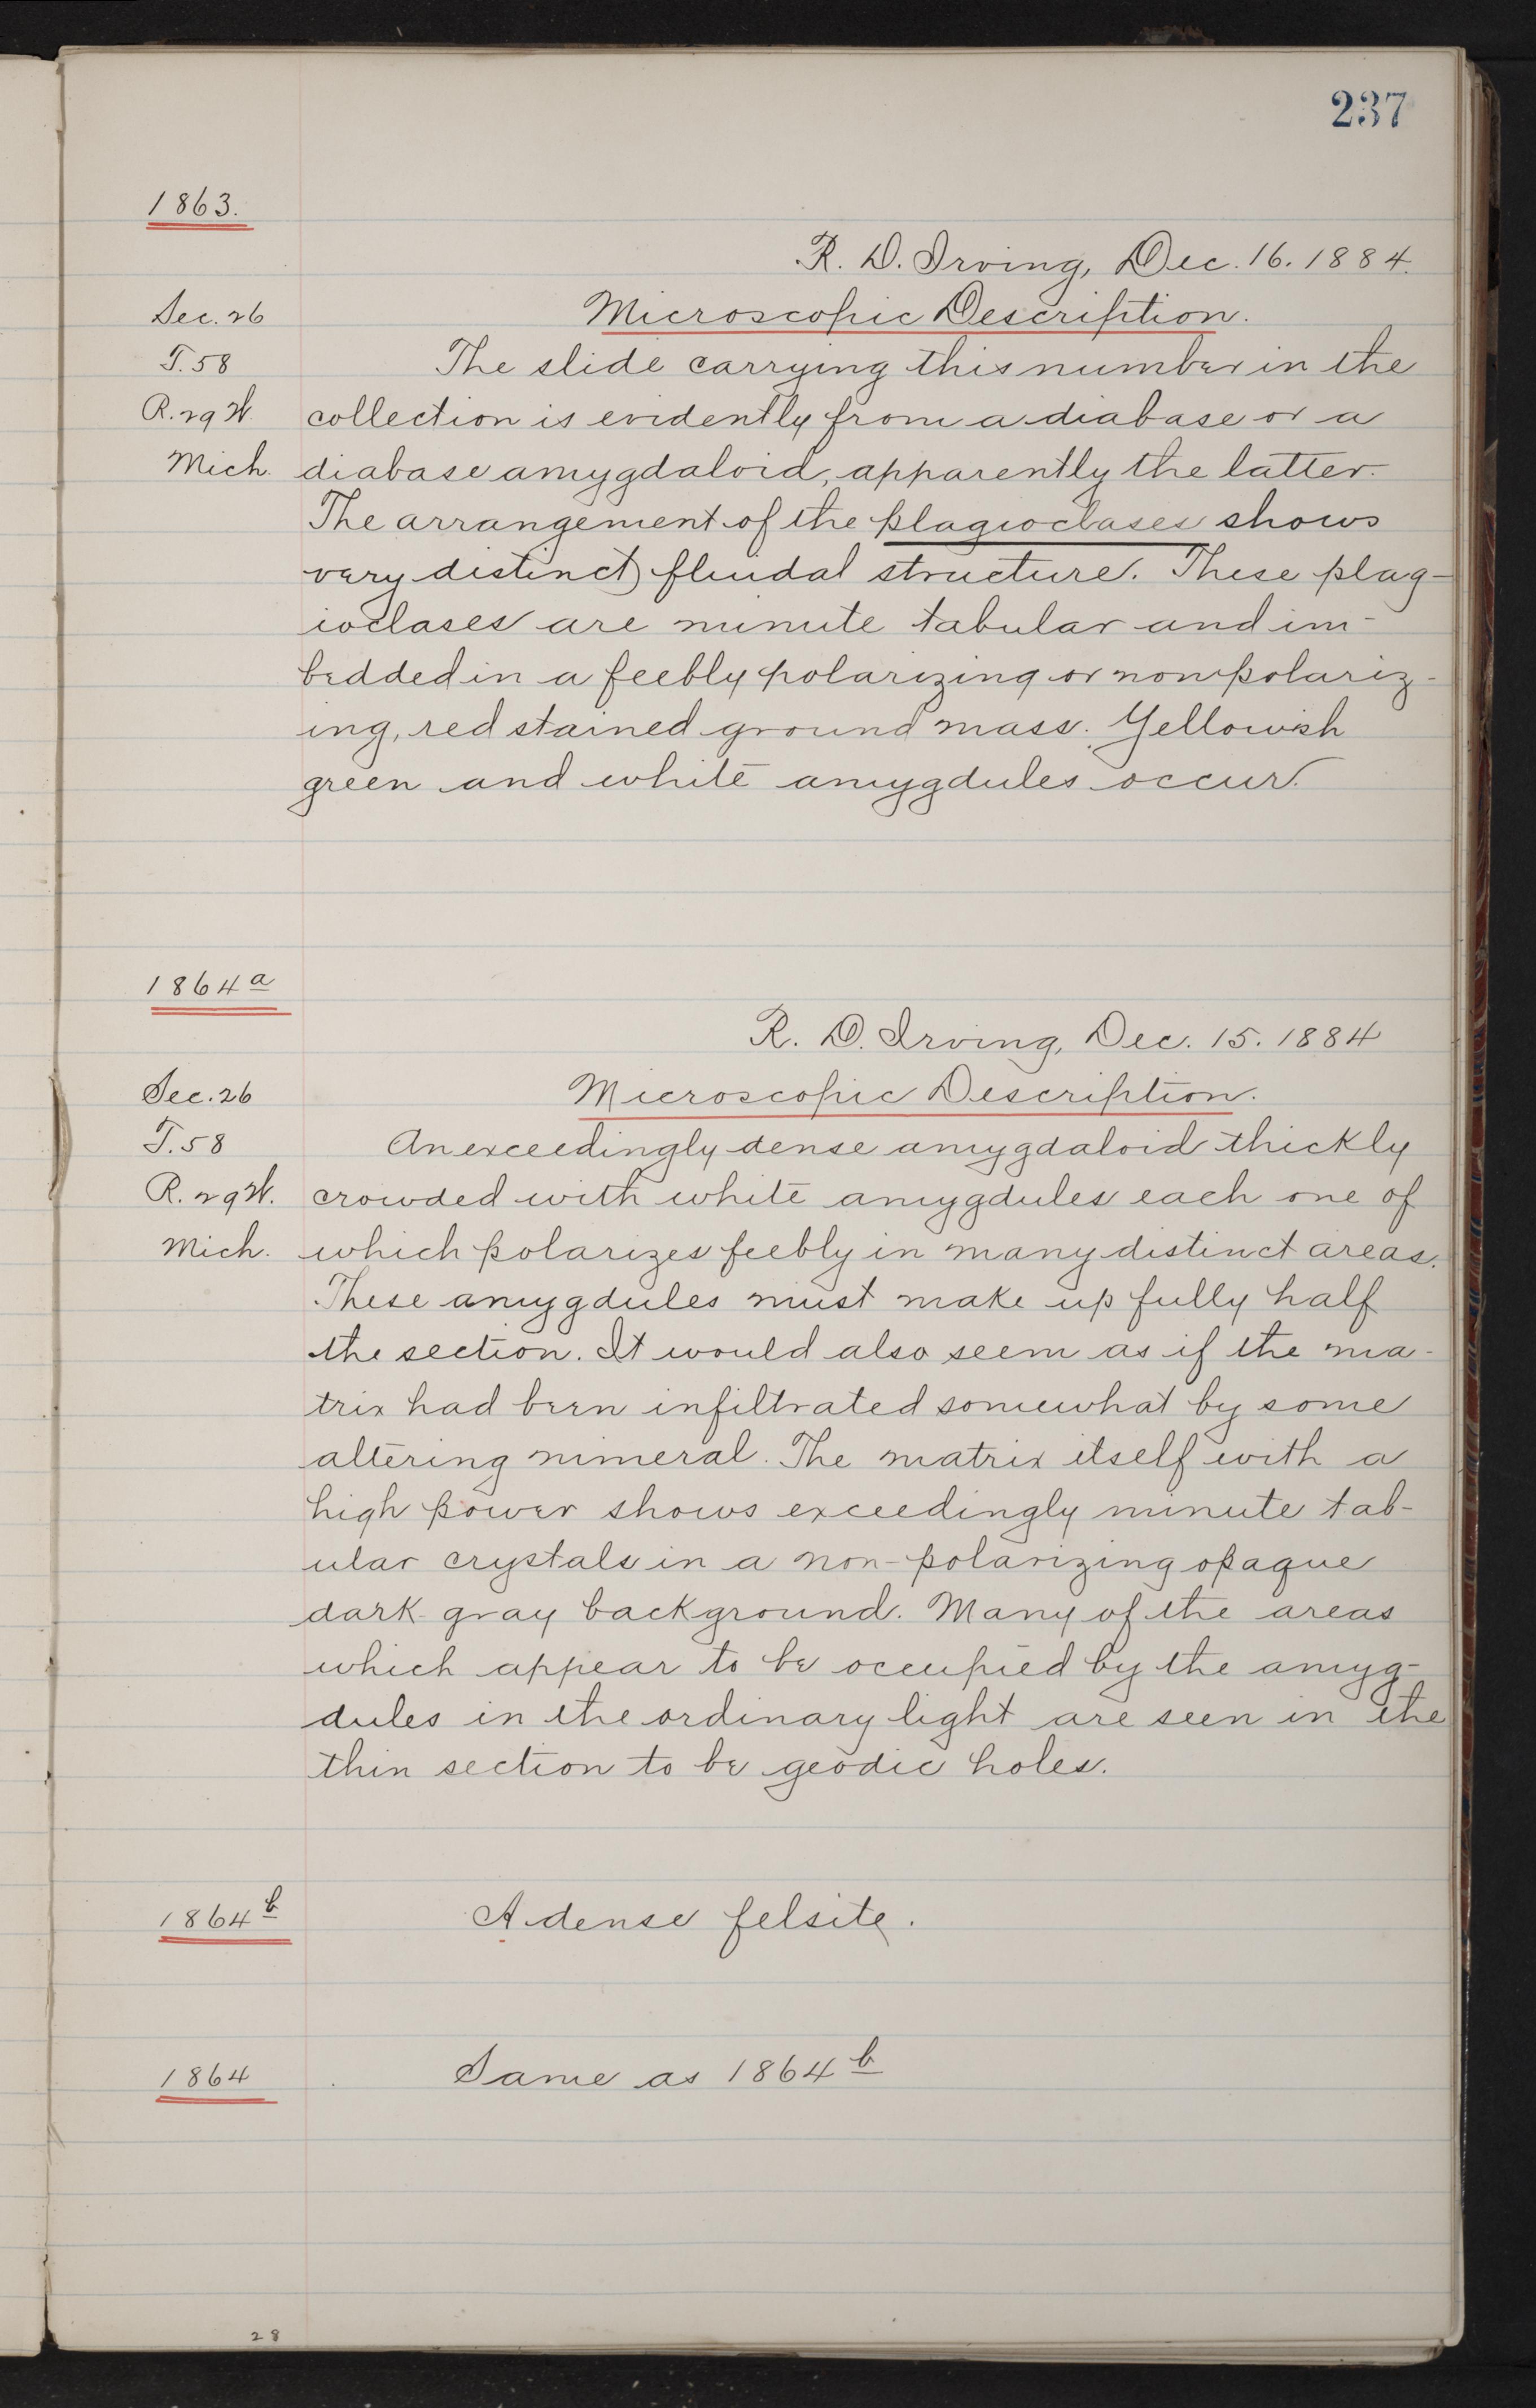 237
1863.
R. D. Irving, Dec. 16. 1884.
Sec. 26
Microscopic Description.
T. 58
The slide carrying this number in the
R. 29 W.
collection is evidently from a diabase or a
Mich.
diabase amygdaloid, apparently the latter.
The arrangement of the plagioclases shows
very distinct fluidal structure. These plag-
ioclases are minute tabular and im-
bedded in a feebly polarizing or non polariz-
ing, red stained ground mass. Yellowish
green and white amygdules occur.
1864 a
R. D. Irving, Dec. 15. 1884
Sec. 26
Microscopic Description.
T. 58
An exceedingly dense amygdaloid thickly
R. 29 W.
crowded with white amygdules each one of
Mich.
which polarizes feebly in many distinct areas.
These amygdules must make up fully half
the section. It would also seem as if the ma-
trix had been infiltrated somewhat by some
altering mineral. The matrix itself with a
high power shows exceedingly minute tab-
ular crystals in a non-polarizing opaque
dark gray background. Many of the areas
which appear to be occupied by the amyg-
dules in the ordinary light are seen in the
thin section to be geodic holes.
1864 b
A dense felsite.
1864
Same as 1864 b
28